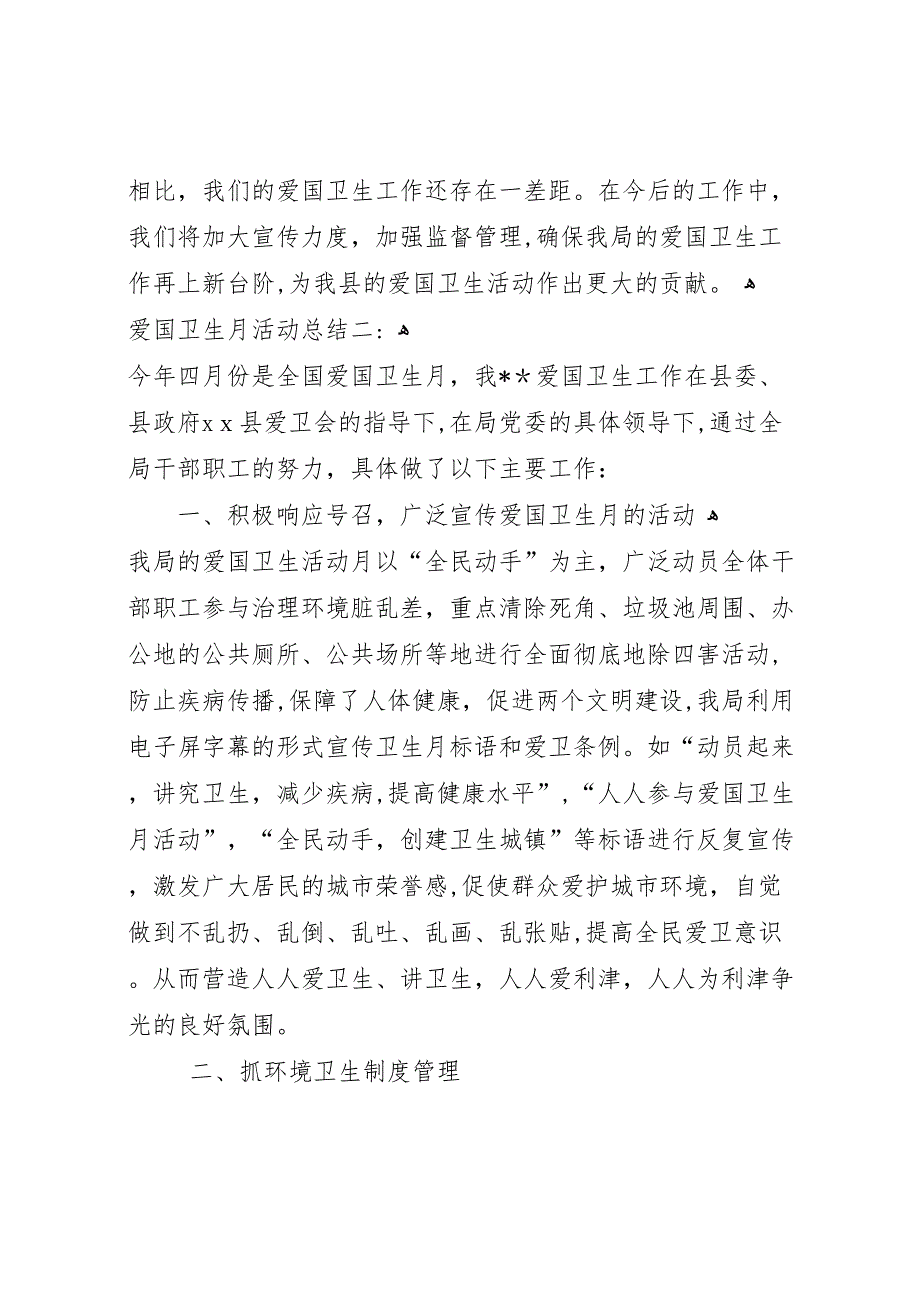 相比，我们的爱国卫生工作还存在一差距。在今后的工作中，
我们将加大宣传力度，加强监督管理,确保我局的爱国卫生工
作再上新台阶,为我县的爱国卫生活动作出更大的贡献。 ﻫ
爱国卫生月活动总结二: ﻫ
今年四月份是全国爱国卫生月，我**爱国卫生工作在县委、
县政府xx县爱卫会的指导下,在局党委的具体领导下,通过全
局干部职工的努力，具体做了以下主要工作:
一、积极响应号召，广泛宣传爱国卫生月的活动 ﻫ
我局的爱国卫生活动月以“全民动手”为主，广泛动员全体干
部职工参与治理环境脏乱差，重点清除死角、垃圾池周围、办
公地的公共厕所、公共场所等地进行全面彻底地除四害活动,
防止疾病传播,保障了人体健康，促进两个文明建设,我局利用
电子屏字幕的形式宣传卫生月标语和爱卫条例。如“动员起来
，讲究卫生，减少疾病,提高健康水平”,“人人参与爱国卫生
月活动”，“全民动手，创建卫生城镇”等标语进行反复宣传
，激发广大居民的城市荣誉感,促使群众爱护城市环境，自觉
做到不乱扔、乱倒、乱吐、乱画、乱张贴,提高全民爱卫意识
。从而营造人人爱卫生、讲卫生，人人爱利津，人人为利津争
光的良好氛围。
二、抓环境卫生制度管理